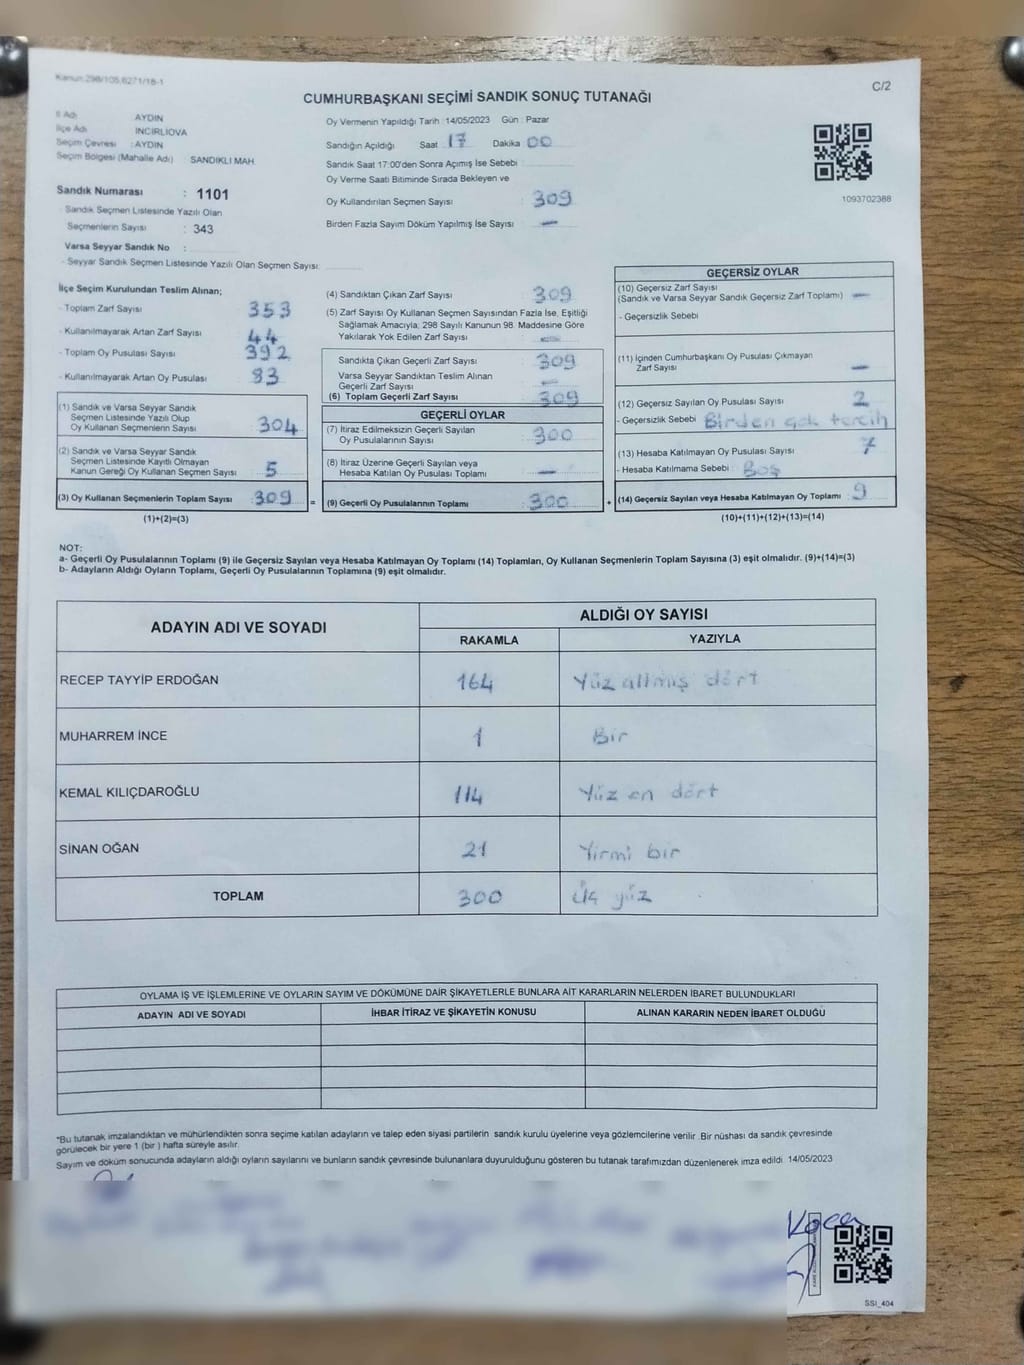 Kanun:298/105,6271/18-1
C/2
CUMHURBAŞKANI SEÇİMİ SANDIK SONUÇ TUTANAĞI
İl Adı AYDIN
İlçe Adı İNCİRLİOVA
Seçim Çevresi : AYDIN
Seçim Bölgesi (Mahalle Adı) SANDIKLI MAH
Sandık Numarası : 1101
- Sandık Seçmen Listesinde Yazılı Olan
Seçmenlerin Sayısı : 343
Varsa Seyyar Sandık No :
- Seyyar Sandık Seçmen Listesinde Yazılı Olan Seçmen Sayısı:
Oy Vermenin Yapıldığı Tarih :14/05/2023 Gün : Pazar
Sandığın Açıldığı Saat 17 Dakika 00
Sandık Saat 17:00'den Sonra Açımış İse Sebebi :
Oy Verme Saati Bitiminde Sırada Bekleyen ve
Oy Kullandırılan Seçmen Sayısı : 309
Birden Fazla Sayım Döküm Yapılmış İse Sayısı : —
1093702388
İlçe Seçim Kurulundan Teslim Alınan;
- Toplam Zarf Sayısı : 353
- Kullanılmayarak Artan Zarf Sayısı : 44
- Toplam Oy Pusulası Sayısı : 392
- Kullanılmayarak Artan Oy Pusulası : 83
(1) Sandık ve Varsa Seyyar Sandık
Seçmen Listesinde Yazılı Olup
Oy Kullanan Seçmenlerin Sayısı : 304
(2) Sandık ve Varsa Seyyar Sandık
Seçmen Listesinde Kayıtlı Olmayan
Kanun Gereği Oy Kullanan Seçmen Sayısı : 5
(3) Oy Kullanan Seçmenlerin Toplam Sayısı : 309 =
(1)+(2)=(3)
(4) Sandıktan Çıkan Zarf Sayısı : 309
(5) Zarf Sayısı Oy Kullanan Seçmen Sayısından Fazla İse, Eşitliği
Sağlamak Amacıyla, 298 Sayılı Kanunun 98. Maddesine Göre
Yakılarak Yok Edilen Zarf Sayısı : —
Sandıkta Çıkan Geçerli Zarf Sayısı : 309
Varsa Seyyar Sandıktan Teslim Alınan
Geçerli Zarf Sayısı : —
(6) Toplam Geçerli Zarf Sayısı : 309
GEÇERLİ OYLAR
(7) İtiraz Edilmeksizin Geçerli Sayılan
Oy Pusulalarının Sayısı : 300
(8) İtiraz Üzerine Geçerli Sayılan veya
Hesaba Katılan Oy Pusulası Toplamı : —
(9) Geçerli Oy Pusulalarının Toplamı : 300 +
GEÇERSİZ OYLAR
(10) Geçersiz Zarf Sayısı
(Sandık ve Varsa Seyyar Sandık Geçersiz Zarf Toplamı) : —
- Geçersizlik Sebebi
(11) İçinden Cumhurbaşkanı Oy Pusulası Çıkmayan
Zarf Sayısı : —
(12) Geçersiz Sayılan Oy Pusulası Sayısı : 2
- Geçersizlik Sebebi : Birden çok tercih
(13) Hesaba Katılmayan Oy Pusulası Sayısı : 7
- Hesaba Katılmama Sebebi : Boş
(14) Geçersiz Sayılan veya Hesaba Katılmayan Oy Toplamı : 9
(10)+(11)+(12)+(13)=(14)
NOT:
a- Geçerli Oy Pusulalarının Toplamı (9) ile Geçersiz Sayılan veya Hesaba Katılmayan Oy Toplamı (14) Toplamları, Oy Kullanan Seçmenlerin Toplam Sayısına (3) eşit olmalıdır. (9)+(14)=(3)
b- Adayların Aldığı Oyların Toplamı, Geçerli Oy Pusulalarının Toplamına (9) eşit olmalıdır.
ADAYIN ADI VE SOYADI
ALDIĞI OY SAYISI
RAKAMLA YAZIYLA
RECEP TAYYİP ERDOĞAN 164 Yüz altmış dört
MUHARREM İNCE 1 Bir
KEMAL KILIÇDAROĞLU 114 Yüz on dört
SİNAN OĞAN 21 Yirmi bir
TOPLAM 300 Üç yüz
OYLAMA İŞ VE İŞLEMLERİNE VE OYLARIN SAYIM VE DÖKÜMÜNE DAİR ŞİKAYETLERLE BUNLARA AİT KARARLARIN NELERDEN İBARET BULUNDUKLARI
ADAYIN ADI VE SOYADI İHBAR İTİRAZ VE ŞİKAYETİN KONUSU ALINAN KARARIN NEDEN İBARET OLDUĞU
*Bu tutanak imzalandıktan ve mühürlendikten sonra seçime katılan adayların ve talep eden siyasi partilerin sandık kurulu üyelerine veya gözlemcilerine verilir .Bir nüshası da sandık çevresinde
görülecek bir yere 1 (bir ) hafta süreyle asılır.
Sayım ve döküm sonucunda adayların aldığı oyların sayılarını ve bunların sandık çevresinde bulunanlara duyurulduğunu gösteren bu tutanak tarafımızdan düzenlenerek imza edildi 14/05/2023
Koca
SSI_404